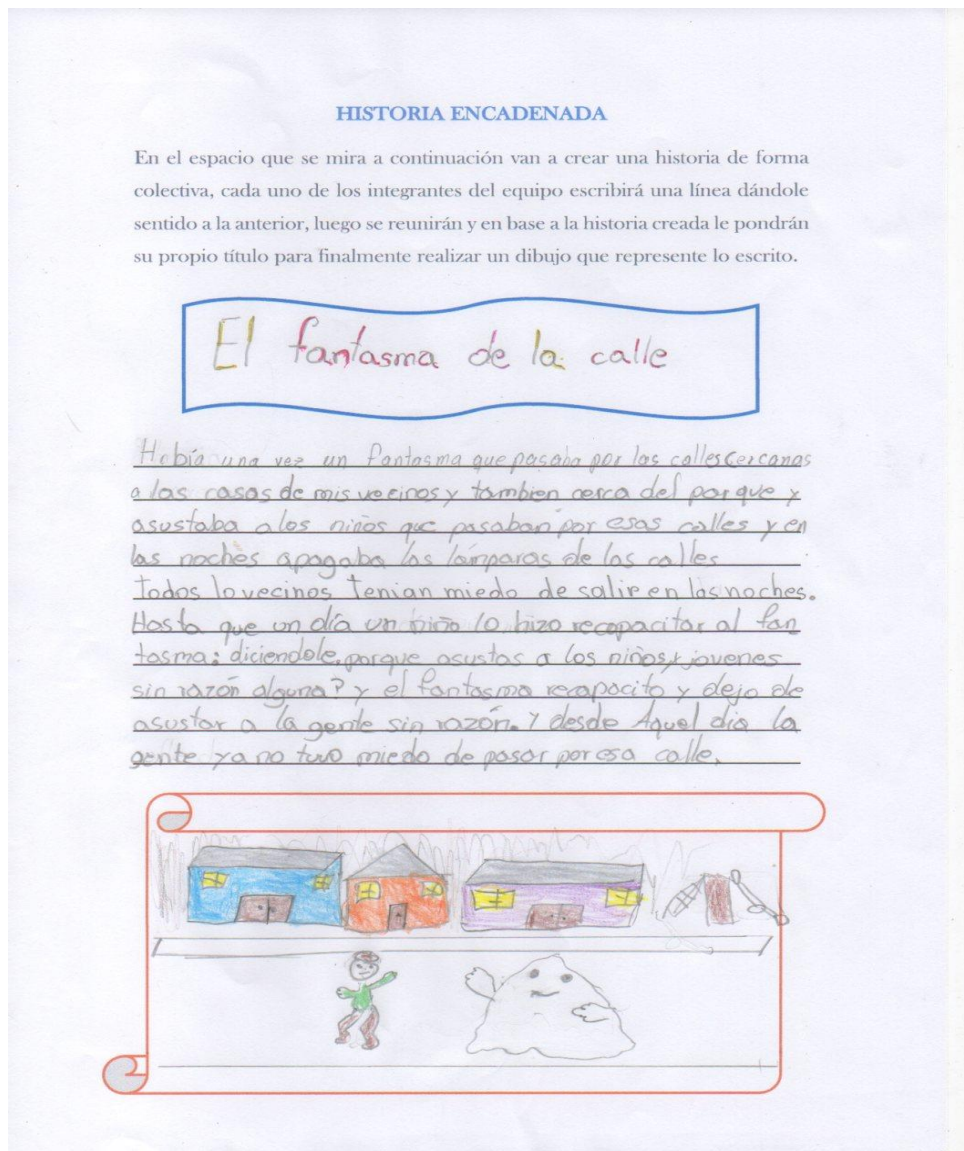 HISTORIA ENCADENADA
En el espacio que se mira a continuación van a crear una historia de forma
colectiva, cada uno de los integrantes del equipo escribirá una línea dándole
sentido a la anterior, luego se reunirán y en base a la historia creada le pondrán
su propio título para finalmente realizar un dibujo que represente lo escrito.
El fantasma de la calle
Había una vez un fantasma que pasaba por las calles Cercanas
a las casas de mis vecinos y tambien cerca del parque y
asustaba a los niños que pasaban por esas calles y en
las noches apagaba las lámparas de las calles
Todos lo vecinos Tenian miedo de salir en las noches.
Hasta que un día un niño lo hizo recapacitar al fan
tasma: diciendole. porque asustas a los niños y jovenes
sin razón alguna? y el fantasma recapacito y dejo de
asustar a la gente sin razón. Y desde Aquel dia la
gente ya no tuvo miedo de pasar por esa calle.